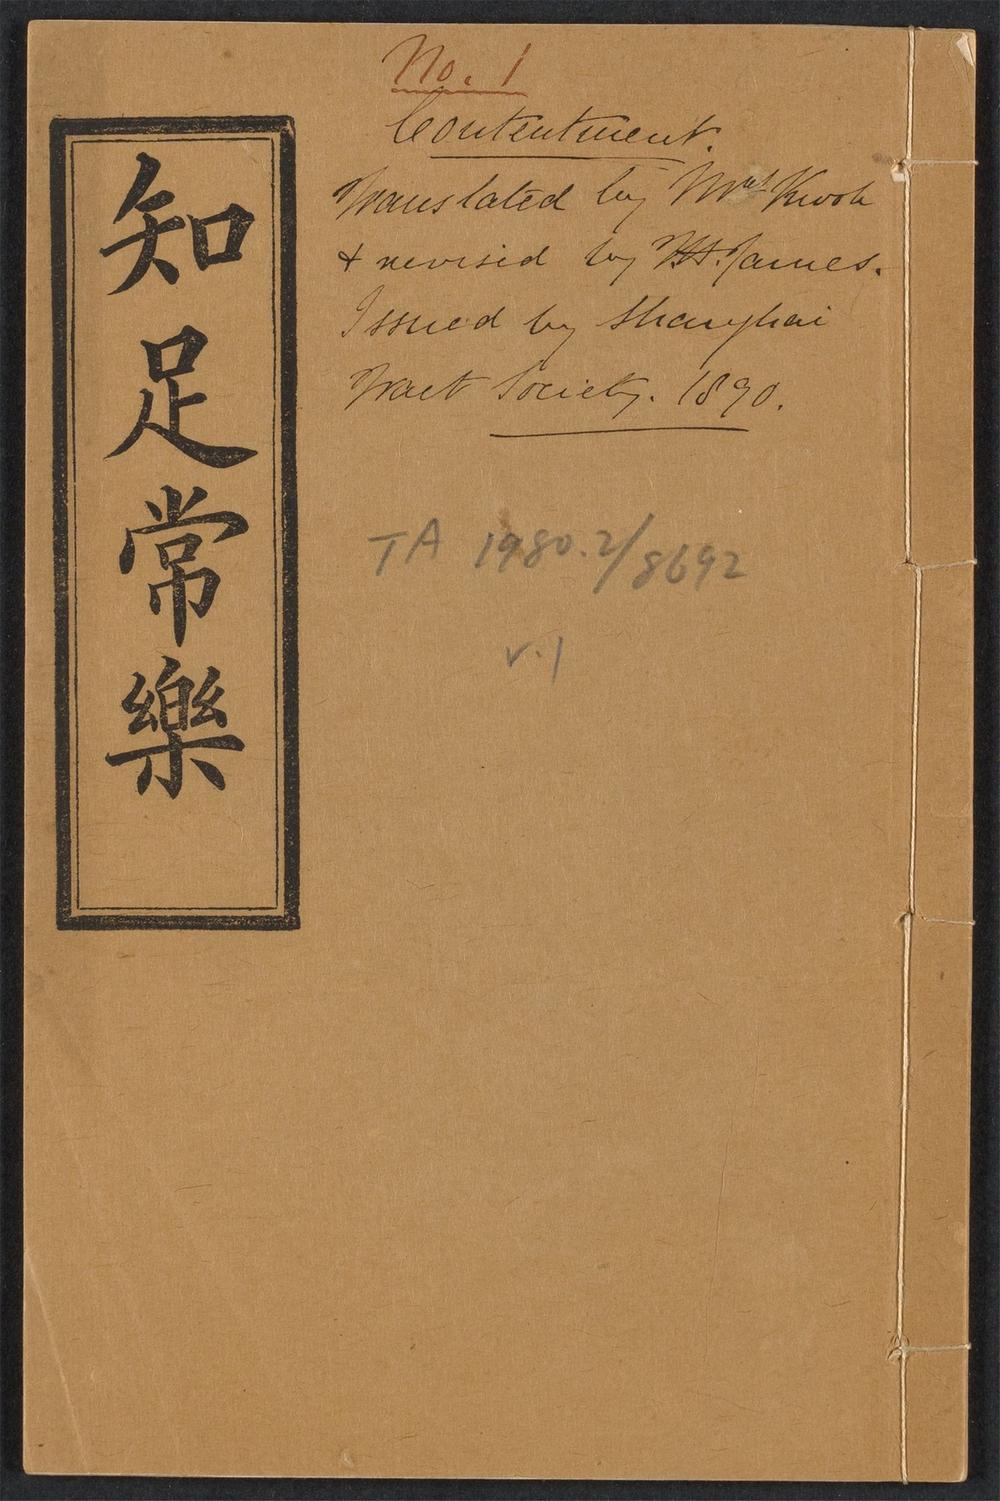 No. 1
Contentment.
Translated by Mrs Kwok
& revised by F.H. James.
Issued by Shanghai
Tract Society. 1890.
知足常樂
TA 1980.2/8692
v.1